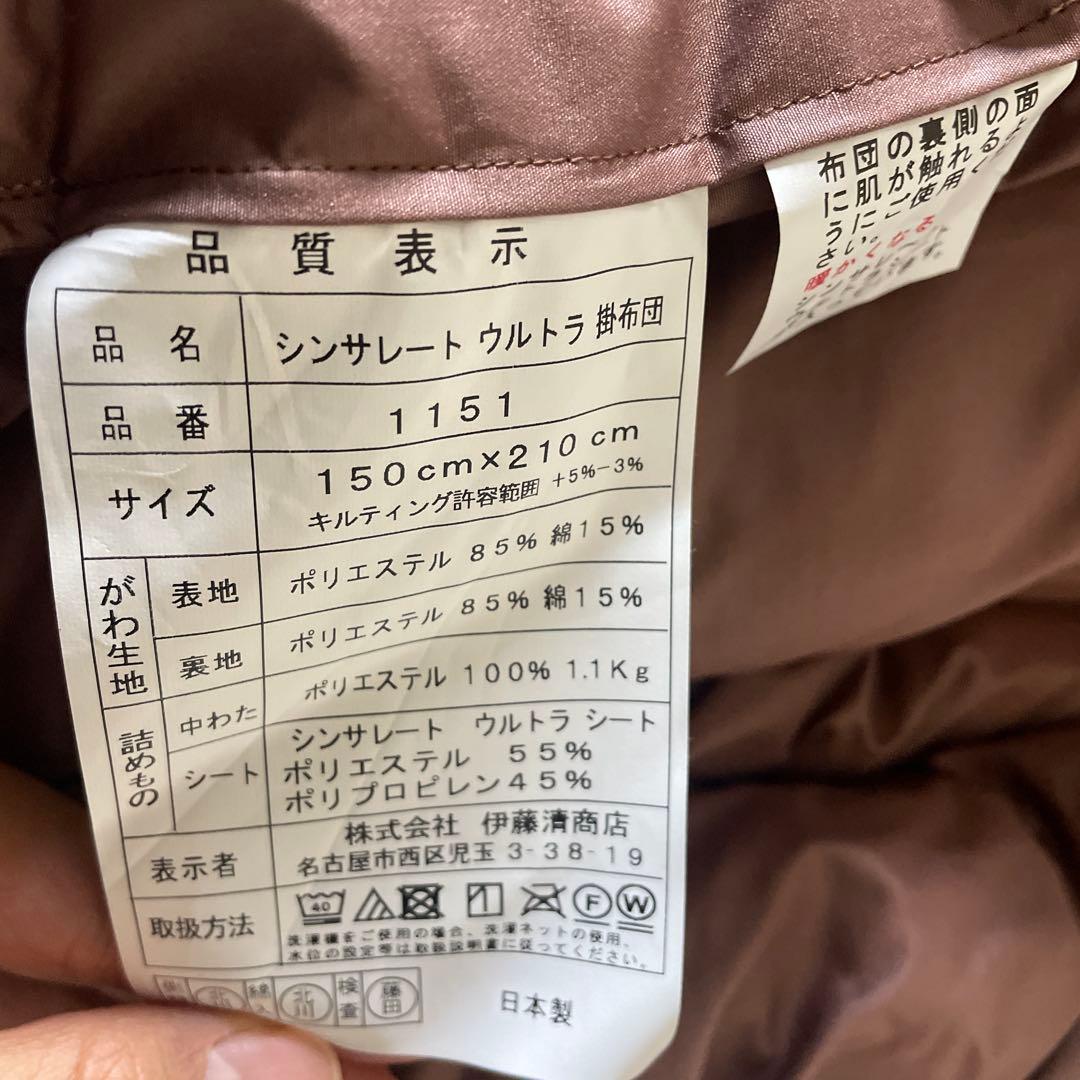 品質表示
品名 シンサレート ウルトラ 掛布団
品番 1151
サイズ 150cm×210cm
キルティング許容範囲 +5%-3%
がわ生地 表地 ポリエステル 85% 綿15%
裏地 ポリエステル 85% 綿15%
詰めもの 中わた ポリエステル 100% 1.1Kg
シート シンサレート ウルトラ シート
ポリエステル 55%
ポリプロピレン45%
表示者 株式会社 伊藤清商店
名古屋市西区児玉 3-38-19
取扱方法 40 F W
洗濯機をご使用の場合、洗濯ネットの使用、
水位の設定等は取扱説明書に従ってください。
北川 検査 藤田
日本製
面
のる
側れ用
裏触使
のが
団肌に
布にう
暖かくなる